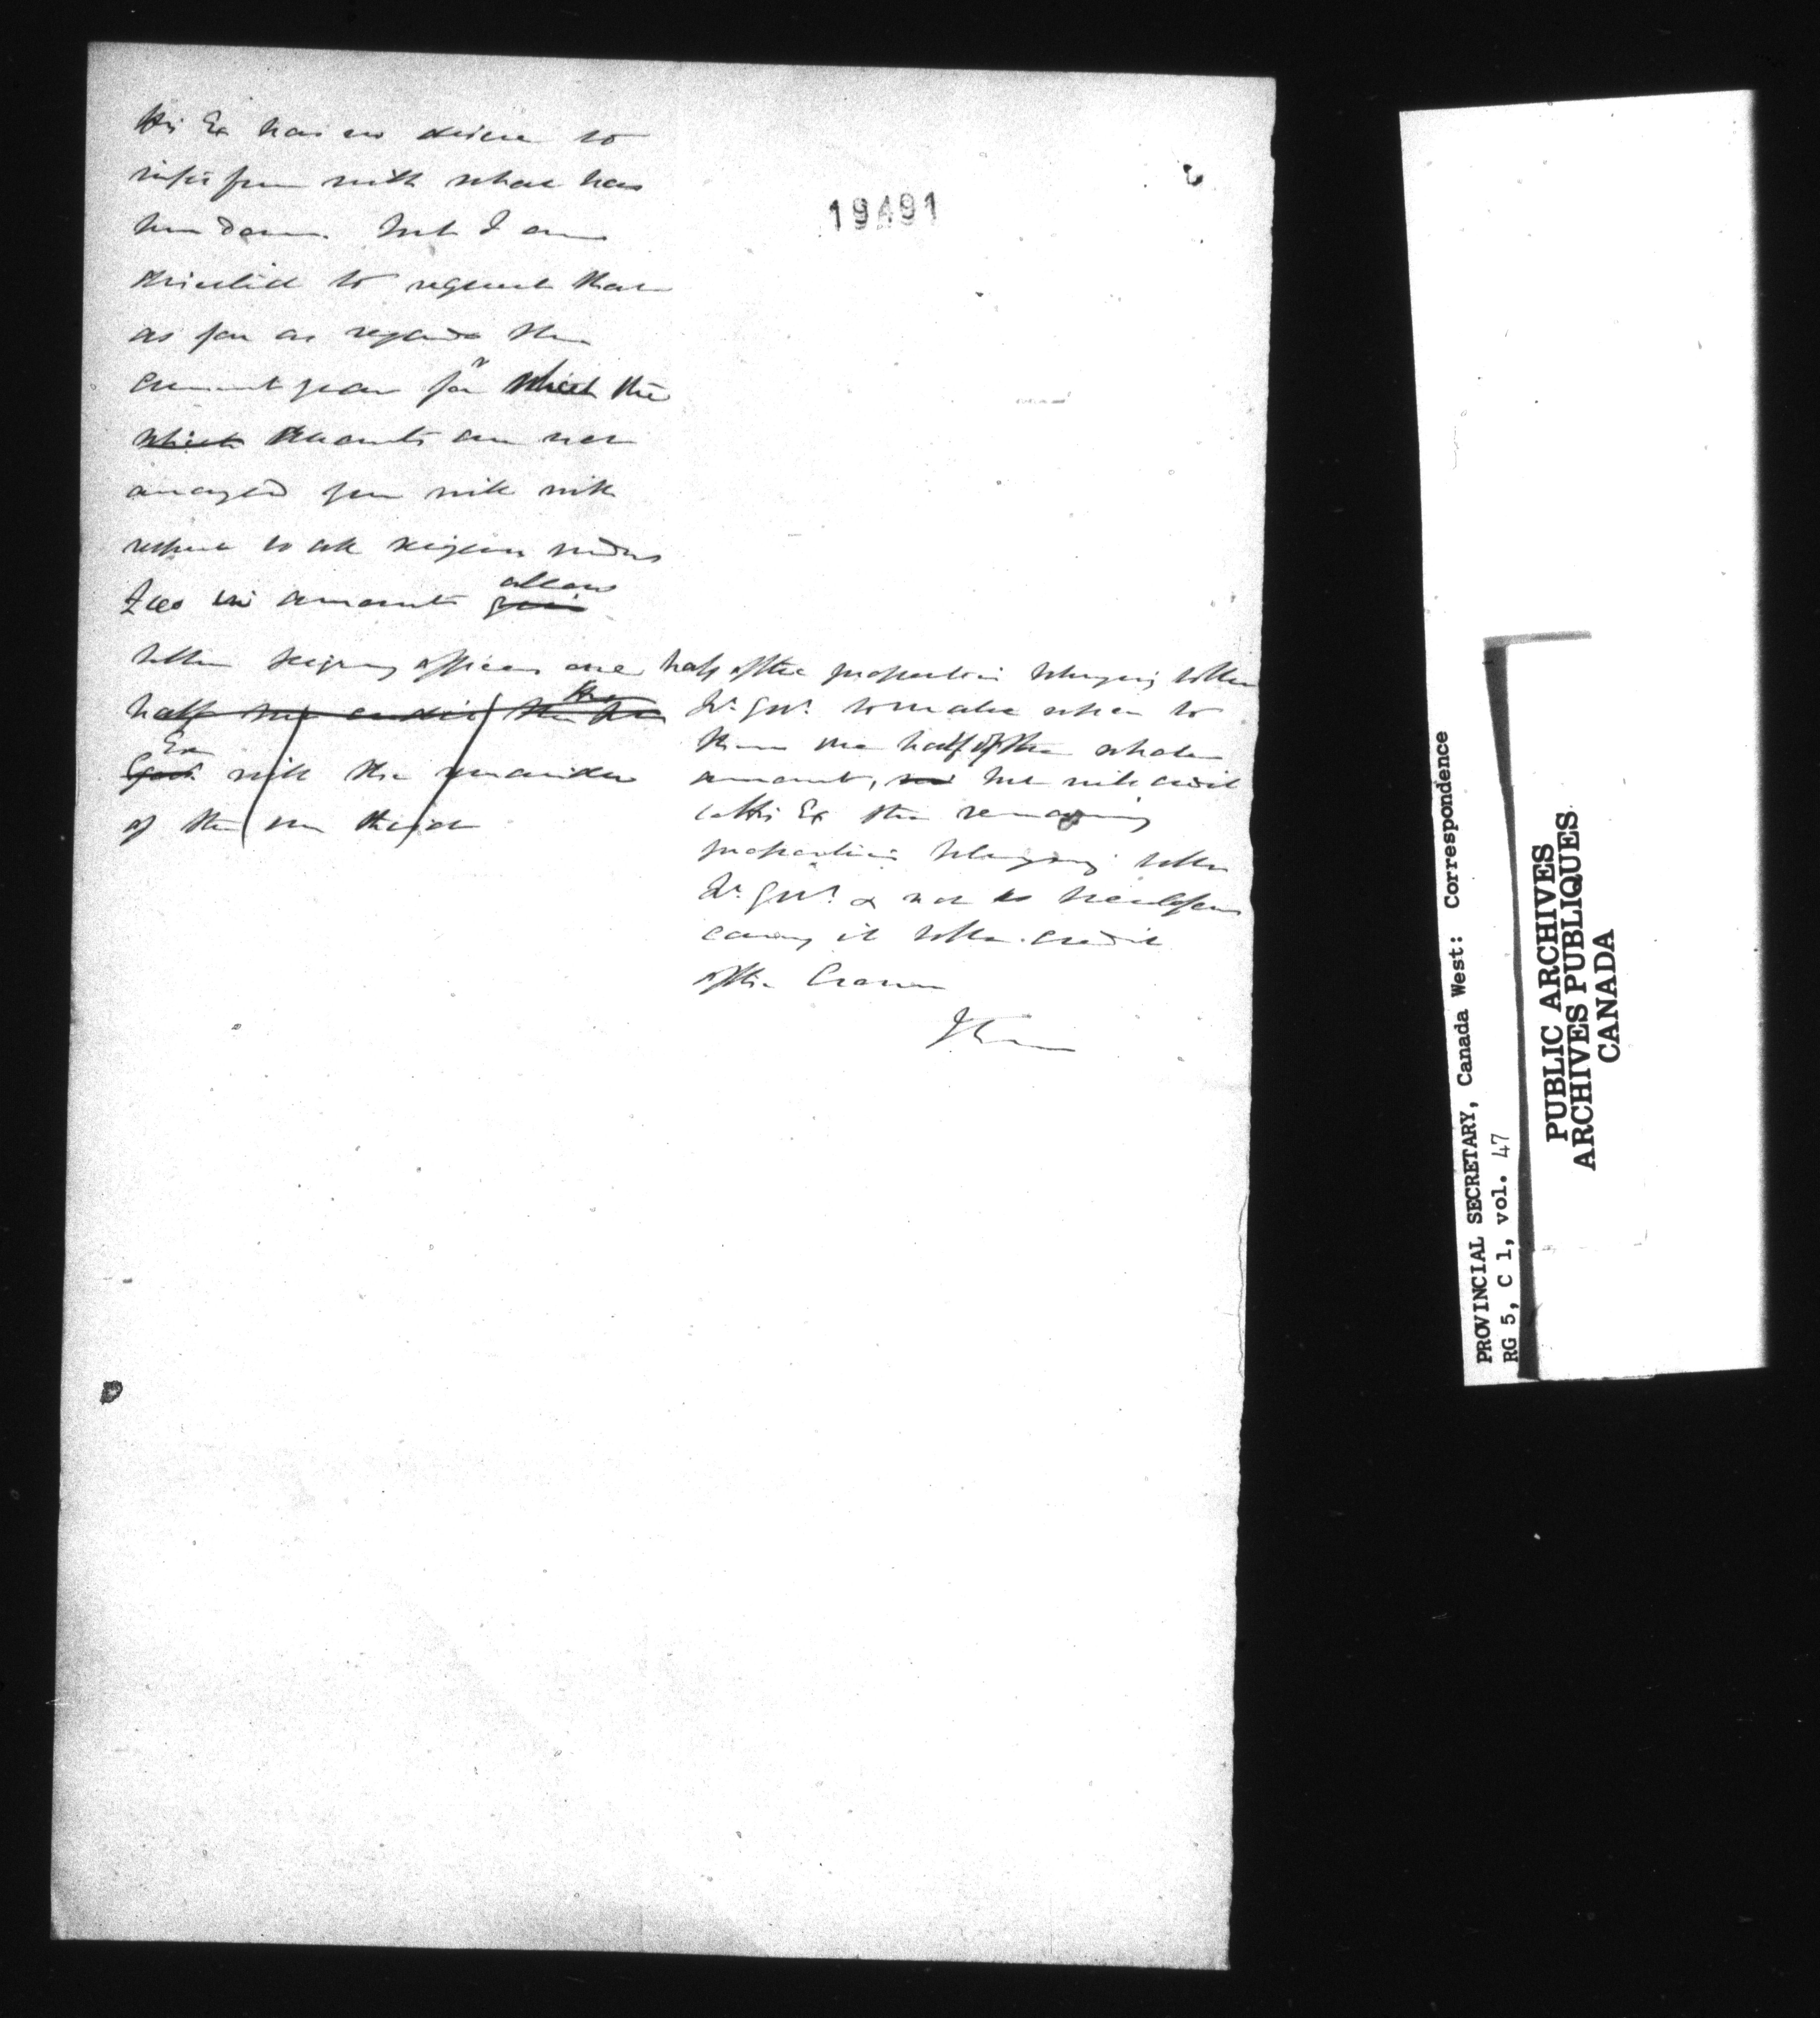 His Ex has no desire to
interfere with what has
been done. but I am
directed to request that
as far as regards the
current year for which the
which accounts are not
arranged you will with
respect to all seizures under
£100 in amount give allow
to the seizing officer one half of the proportion belonging to the
half
Lt. Govr. to make up to
them one half of the whole
amount, but will credit
to His Ex the remaining
proportion belonging to the
Lt. Govr. & not as heretofore
carry it to the credit
of the Crown
Ex
Govt. will the remainder
of the one third
19491
PROVINCIAL SECRETARY, Canada West: Correspondence
RG 5, C 1, vol. 47
PUBLIC ARCHIVES
ARCHIVES PUBLIQUES
CANADA